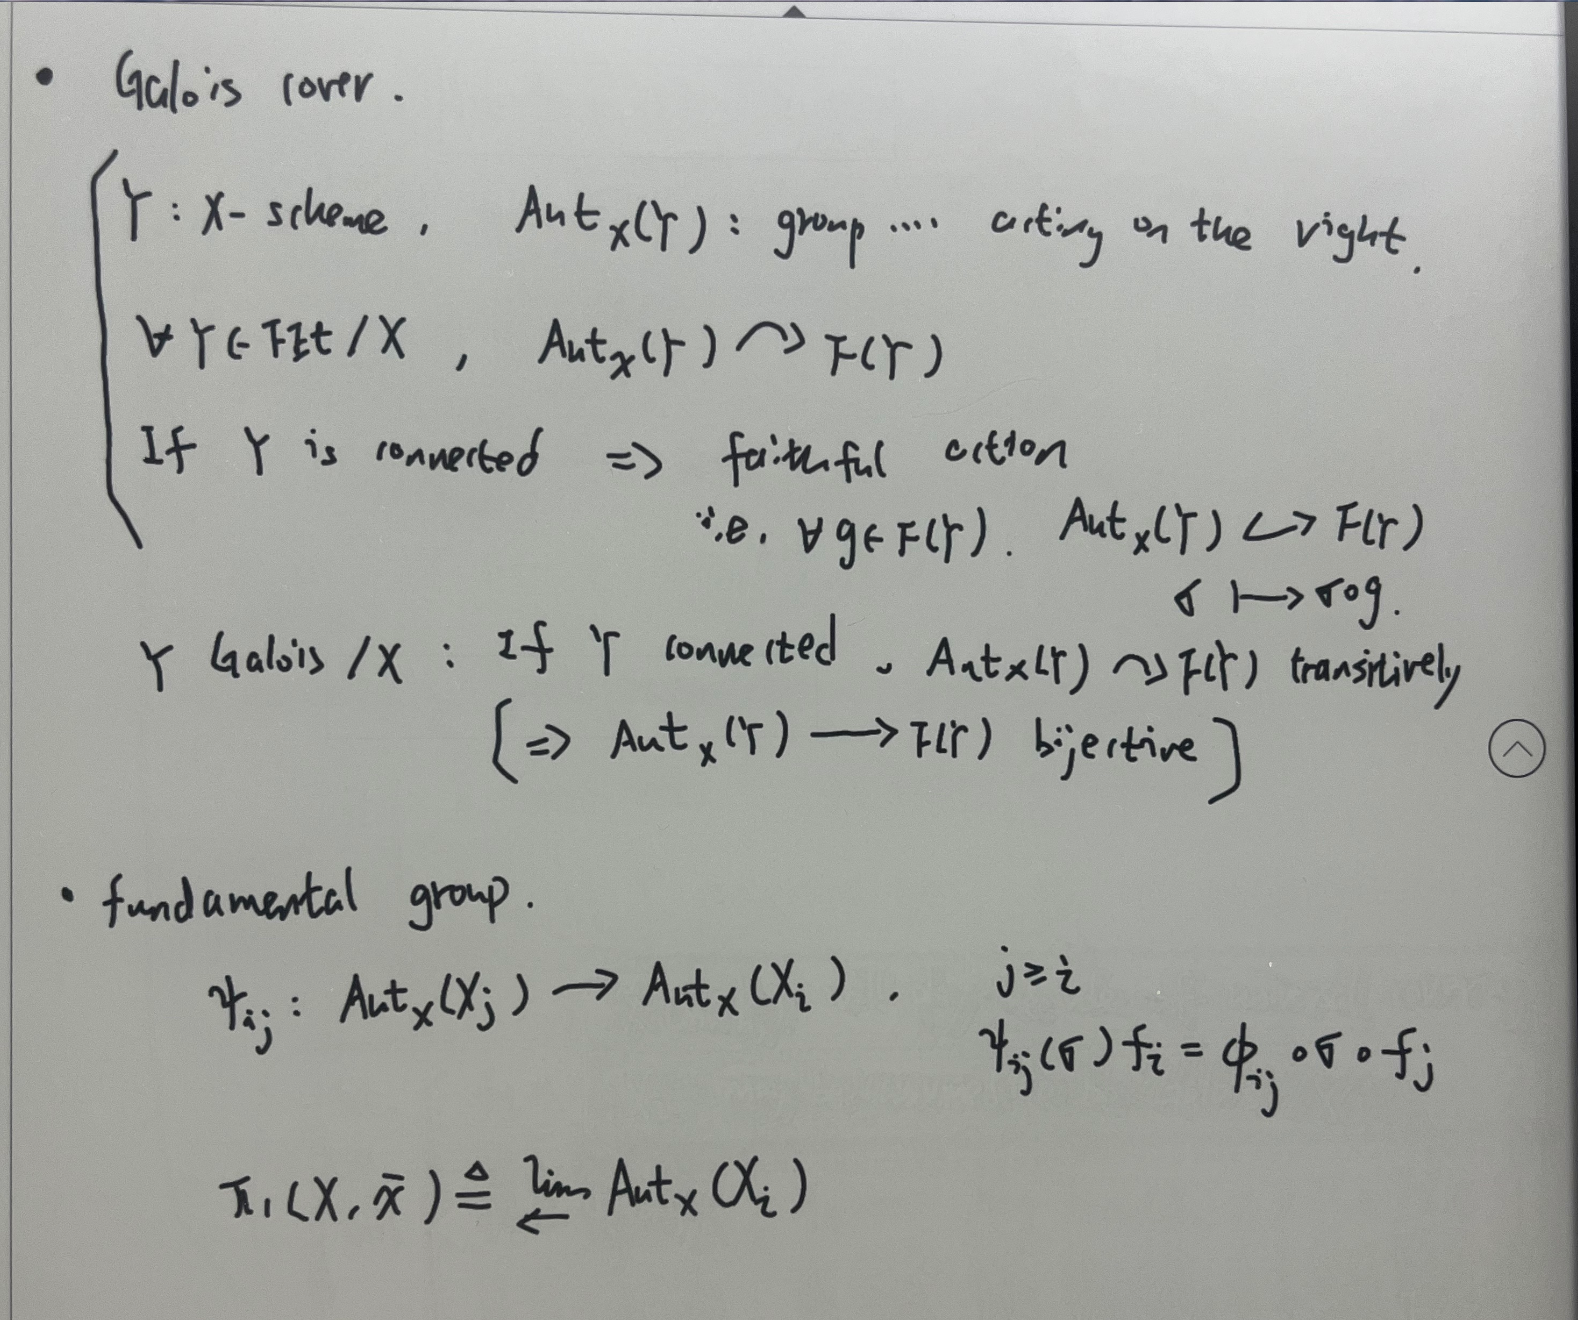 • Galois cover.
Y : X-scheme, Aut_X(Y) : group .... acting on the right.
∀ Y ∈ FEt/X, Aut_X(Y) ↷ F(Y)
If Y is connected ⇒ faithful action
i.e. ∀ g ∈ F(Y). Aut_X(Y) ↪ F(Y)
σ ↦ σ∘g.
Y Galois /X : If Y connected, Aut_X(Y) ↷ F(Y) transitively
[⇒ Aut_X(Y) → F(Y) bijective]
• fundamental group.
ψ_ij : Aut_X(X_j) → Aut_X(X_i). j ≥ i
ψ_ij(σ) f_i = ϕ_ij ∘ σ ∘ f_j
π_1(X, x̄) ≜ lim← Aut_X(X_i)